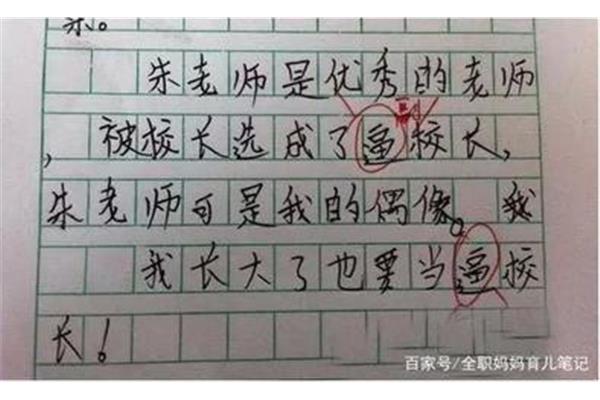 乐。
朱老师是优秀的老师
，被校长选成了逼校长，
朱老师可是我的偶像。我
我长大了也要当逼校
长！
百家号/全职妈妈育儿笔记